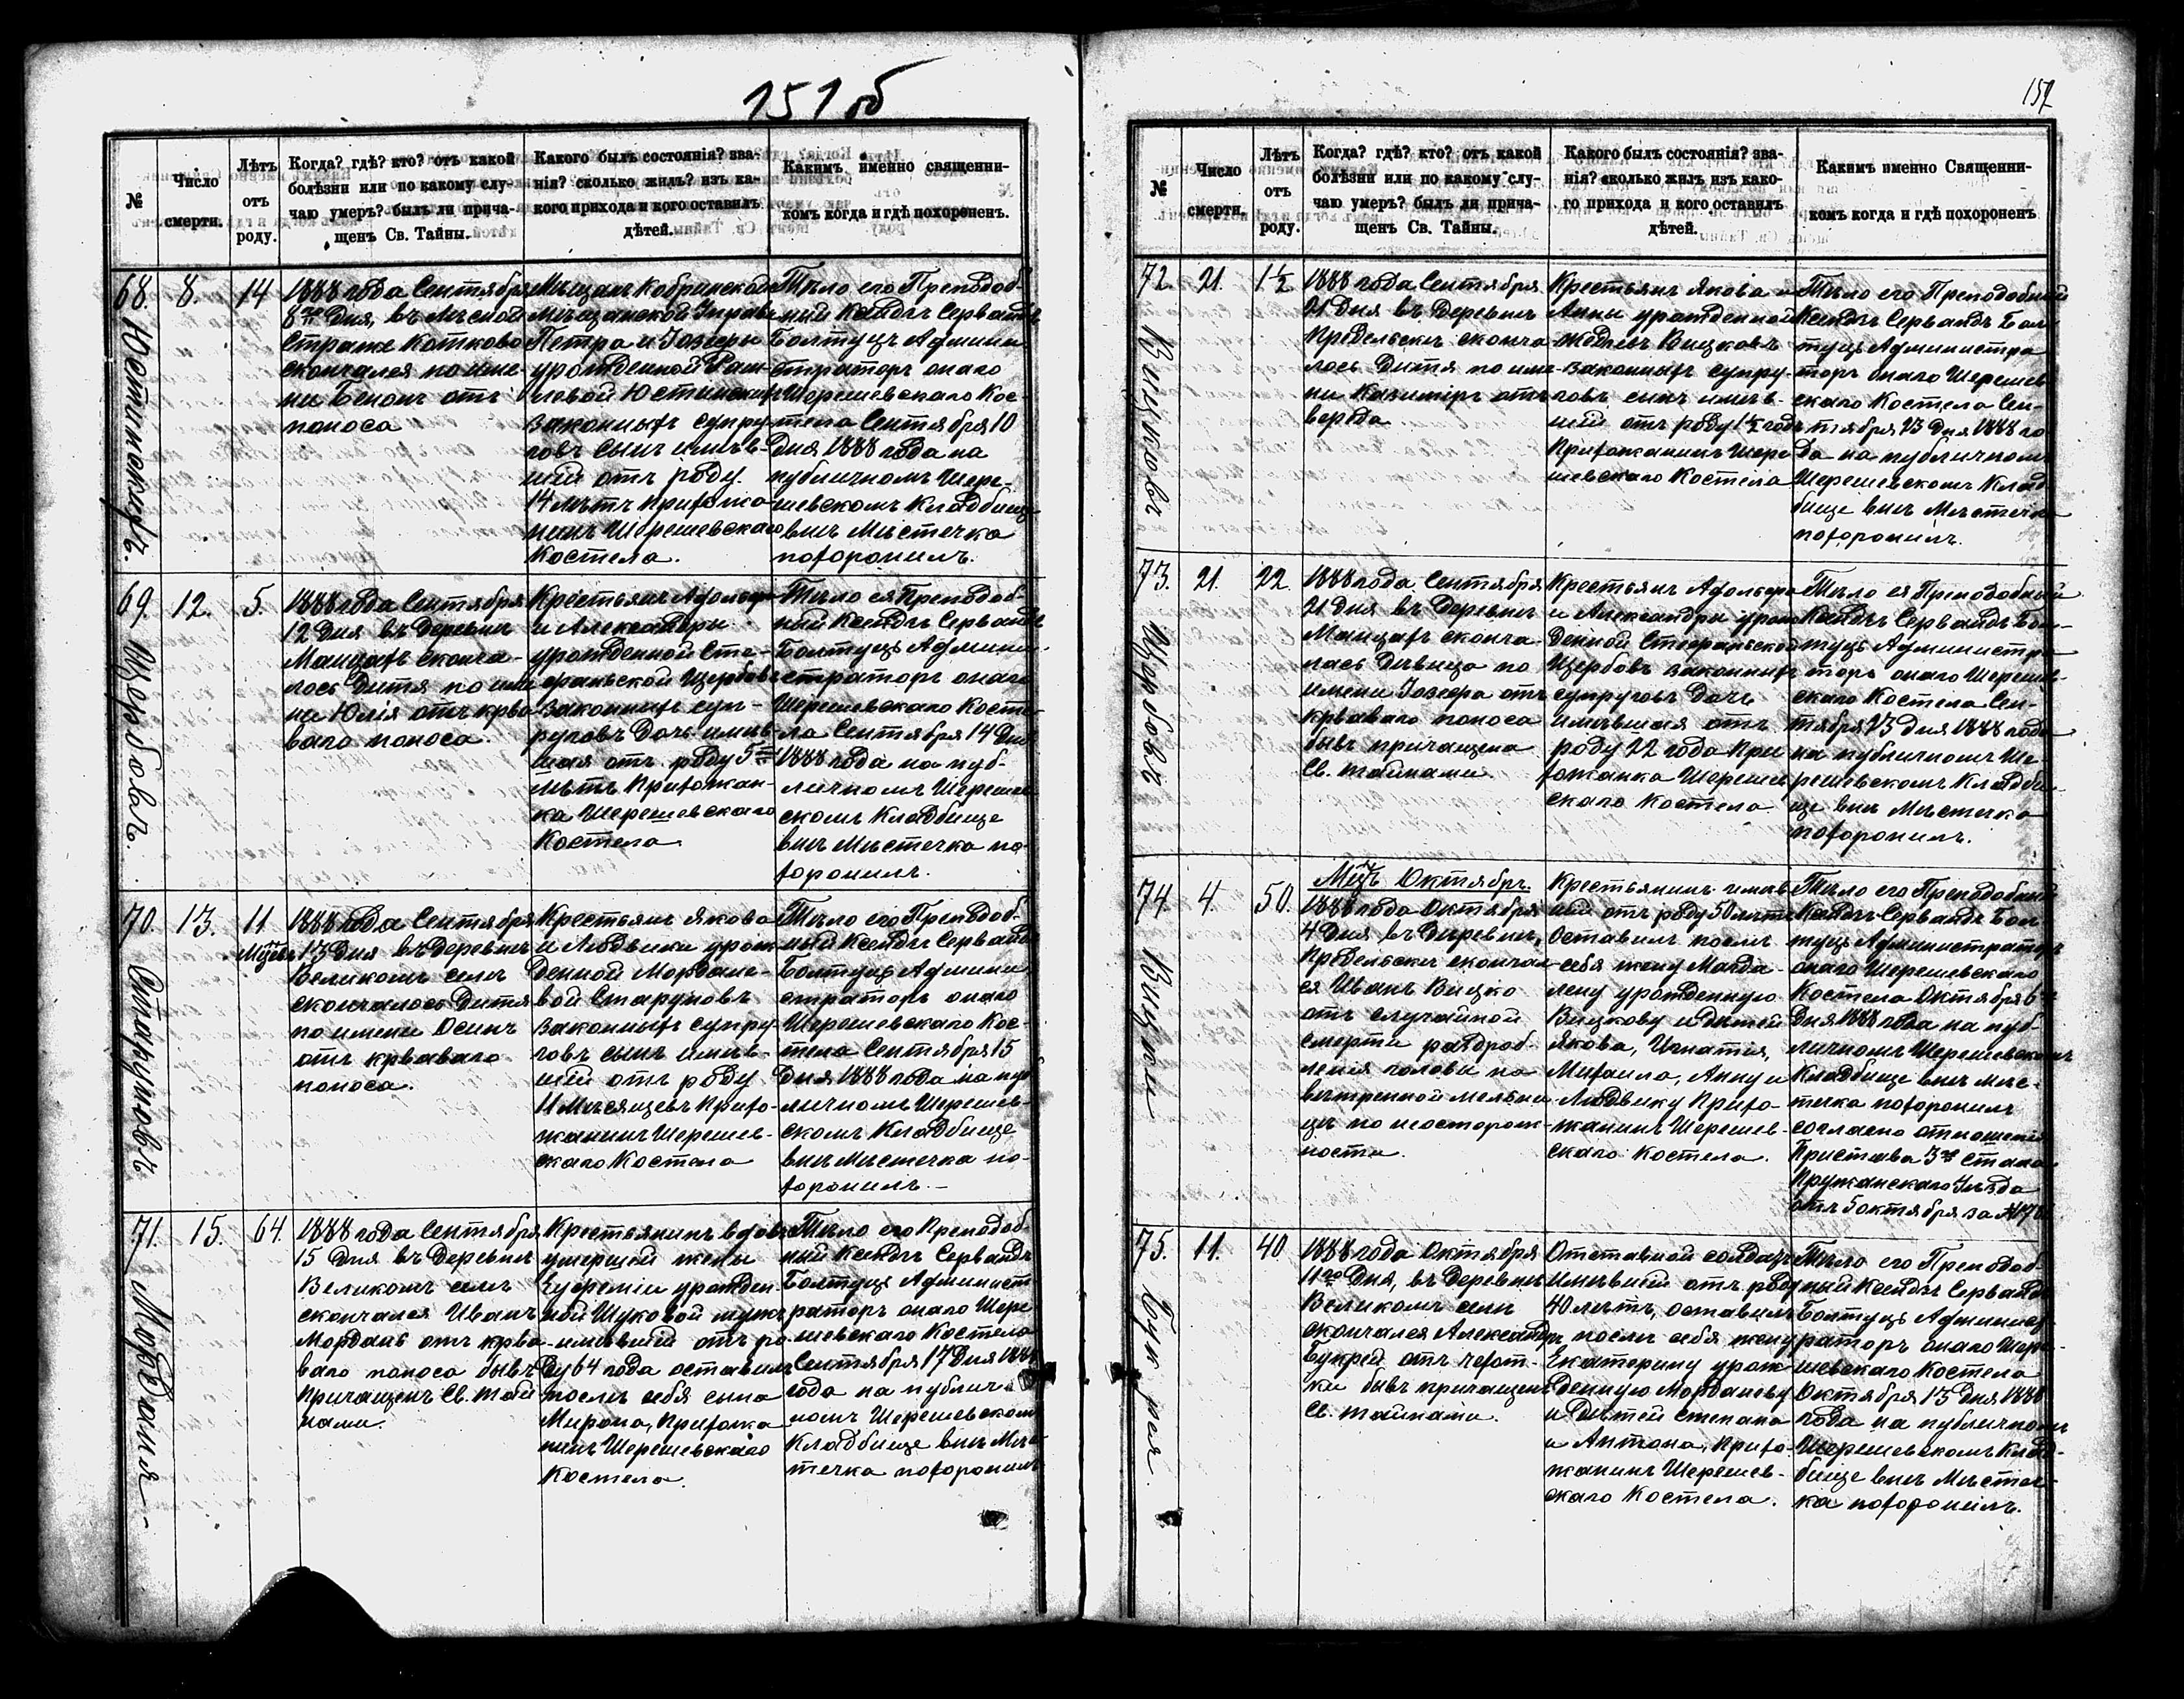 151 об
№
Число
смерти.
Лѣтъ
отъ
роду.
Когда? гдѣ? кто? отъ какой
болѣзни или по какому слу-
чаю умеръ? былъ ли прича-
щенъ Св. Тайны.
Какого былъ состоянія? зва-
нія? сколько жилъ? изъ ка-
кого прихода и кого оставилъ
дѣтей.
Какимъ именно священни-
комъ когда и гдѣ похороненъ.
68.
Юстинскихъ.
8.
14
1888 года Сентября
8го дня, въ Лѣсной
Страже Котково
скончался по име-
ни Бенонъ отъ
поноса
Мѣщанъ Кобринской
Мѣщанской Управы
Петра и Іозефы
урожденной
Юстинскихъ
законныхъ супру
говъ сынъ имѣв-
шій отъ роду.
14 лѣтъ Прихожа
нинъ Шерешевскаго
Костела.
Тѣло его Преподоб-
ный Ксендзъ Сервандъ
Болтуць Админи
страторъ онаго
Шерешевскаго Кос-
тела Сентября 10
дня 1888 года на
публичномъ Шере-
шевскомъ Кладбище
внѣ Мѣстечка
похоронилъ.
69.
Щербовъ
12.
5.
1888 года Сентября
12 дня въ деревнѣ
Манцахъ сконча-
лось дитя по име
ни Юлія отъ крва
ваго поноса.
Крестьянъ Адольфа
и Александры
урожденной Сте-
фаньской Щербовъ
законныхъ суп-
руговъ дочь имѣв-
шая отъ роду 5ть
лѣтъ Прихожан-
ка Шерешевскаго
Костела
Тѣло ея Преподоб-
ный Ксендзъ Сервандъ
Болтуць Админи-
страторъ онаго
Шерешевскаго Косте-
ла Сентября 14 дня
1888 года на пуб-
личномъ Шерешев
скомъ Кладбище
внѣ Мѣстечка по-
хоронилъ.
70.
Старуновъ
13.
11
Мцевъ
1888 года Сентября
13 дня въ деревнѣ
Великомъ селѣ
скончалось дитя
по имени Осипъ
отъ крваваго
поноса.
Крестьянъ Якова
и Людвики урож
денной Мордане-
вой Старуновъ
законныхъ супру
говъ сынъ имѣв-
шій отъ роду
11 Мѣсяцевъ Прихо-
жанинъ Шерешев-
скаго Костела
Тѣло его Преподоб-
ный Ксендзъ Сервандъ
Болтуць Админи
страторъ онаго
Шерешевскаго Кос-
тела Сентября 15
дня 1888 года на пуб
личномъ Шерешев-
скомъ Кладбище
внѣ Мѣстечка по-
хоронилъ.-
71.
Морданъ-
15.
64.
1888 года Сентября
15 дня въ деревнѣ
Великомъ селѣ
скончался Иванъ
Морданъ отъ крва-
ваго поноса бывъ
Причащенъ Св. Тай
нами.
Крестьянинъ вдовъ
умершей жены
Ефреміи урожден-
ной Шуковой мужъ
имѣвшій отъ ро-
ду 64 года оставилъ
послѣ себя сына
Мирона, Прихожа
нинъ Шерешевскаго
Костела.
Тѣло его Преподоб-
ный Ксендзъ Сервандъ
Болтуць Админист
раторъ онаго Шере
шевскаго Костела
Сентября 17 дня 1888
года на публич-
номъ Шерешевскомъ
Кладбище внѣ Мѣс
течка похоронилъ
152
№
Число
смерти.
Лѣтъ
отъ
роду.
Когда? гдѣ? кто? отъ какой
болѣзни или по какому слу-
чаю умеръ? былъ ли прича-
щенъ Св. Тайны.
Какого былъ состоянія? зва-
нія? сколько жилъ изъ како-
го прихода и кого оставилъ
дѣтей.
Какимъ именно Священни-
комъ когда и гдѣ похороненъ
72.
Вицковъ
21.
1½
1888 года Сентября
21 дня въ деревнѣ
Предельски сконча
лось дитя по име-
ни Казимiръ отъ
вереда
Крестьянъ Якова и
Анны урожденной
Вицковъ
законныхъ супру-
говъ сынъ имѣв-
шій отъ роду 1½ года
Прихожанинъ Шере
шевскаго Костела
Тѣло его Преподобный
Ксендзъ Сервандъ Бол
туць Администра
торъ онаго Шерешев
скаго Костела Сен-
тября 23 дня 1888 го
да на публичномъ
Шерешевскомъ Клад
бище внѣ Мѣстечка
похоронилъ.
73.
Щербовъ
21.
22.
1888 года Сентября
21 дня въ деревнѣ
Манцахъ сконча-
лась дѣвица по
имени Іозефа отъ
крваваго поноса
бывъ причащена
Св. тайнами.
Крестьянъ Адольфа
и Александры урож
денной Стефаньской
Щербовъ законныхъ
супруговъ дочь
имѣвшая отъ
роду 22 года При
хожанка Шерешев
скаго Костела
Тѣло ея Преподобный
Ксендзъ Сервандъ Бол-
туць Администра
торъ онаго Шерешев-
скаго Костела Сен-
тября 23 дня 1888 года
на публичномъ Ше
решевскомъ Кладби-
ще внѣ Мѣстечка
похоронилъ.
74.
Вицки
4.
50.
Мцъ Октябрь.
1888 года Октября
4 дня въ деревнѣ,
Предельски скончал
ся Иванъ Вицко
отъ случайной
смерти раздроб-
ленія головы на
вѣтренной мельни
цѣ по неосторож-
ности.
Крестьянинъ имѣв
шій отъ роду 50 лѣтъ
оставилъ послѣ
себя жену Магда-
лену урожденную
Вицкову и дѣтей
Якова, Игнатія,
Михаила, Анну и
Людвику Прихо-
жанинъ Шерешев-
скаго Костела.
Тѣло его Преподобный
Ксендзъ Сервандъ Бол
туць Администраторъ
онаго Шерешевскаго
Костела Октября 6го
дня 1888 года на пуб-
личномъ Шерешевскомъ
Кладбище внѣ Мѣс-
течка похоронилъ
согласно отношенія
Пристава 3го стана
Пружанскаго Уѣзда
отъ 5 октября за №
75.
Букрея
11.
40
1888 года Октября
11го дня, въ деревнѣ
Великомъ селѣ
скончался Александръ
Букрей отъ чехот-
ки бывъ причащенъ
Св. тайнами.
Отставной солдатъ
имѣвшій отъ роду
40 лѣтъ, оставилъ
послѣ себя жену
Екатерину урож
денную Морданову
и дѣтей Степана
и Антона, Прихо-
жанинъ Шерешев-
скаго Костела.
Тѣло его Преподоб-
ный Ксендзъ Сервандъ
Болтуць Админист
раторъ онаго Шере-
шевскаго Костела
Октября 13 дня 1888
года на публичномъ
Шерешевскомъ Клад-
бище внѣ Мѣстеч-
ка похоронилъ.